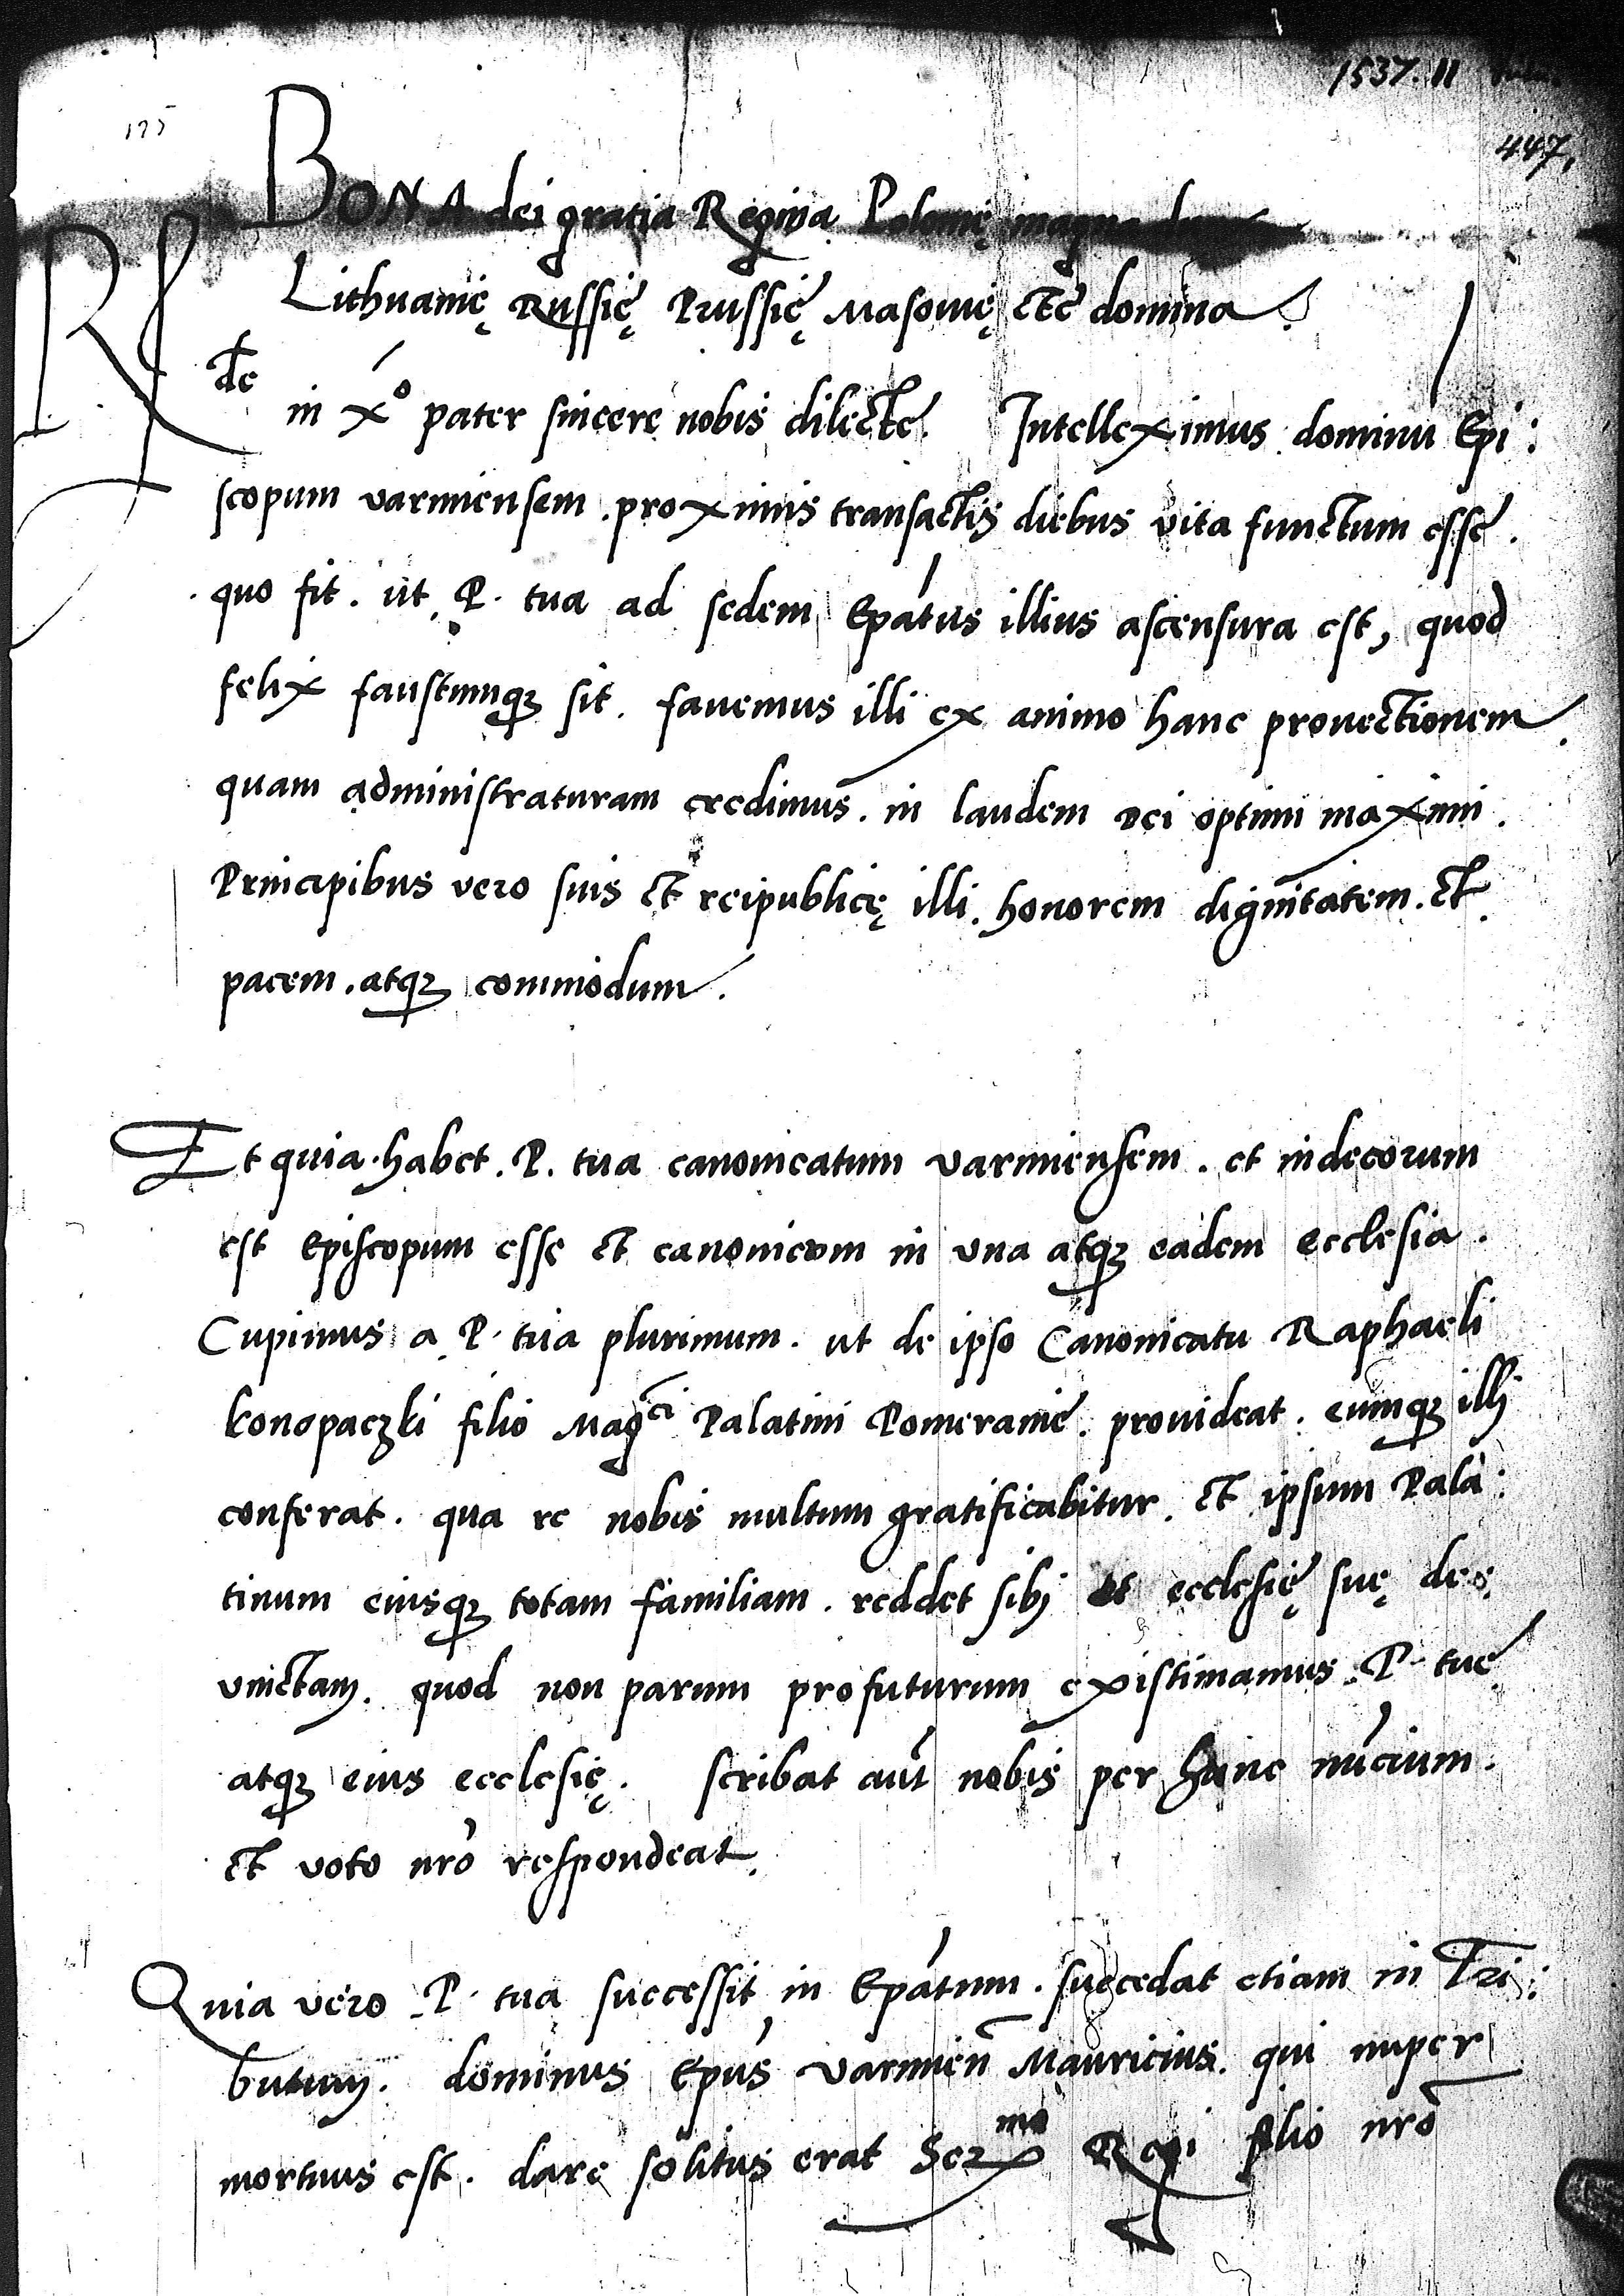 1537. 11
175
447,
BONA dei gratia Regina Polonię magna
Lithuanię Russię Prussię Masouię etc̃ domina.
Rde in Xº pater sincere nobis dilecte. Intelleximus dominu Epi:
scopum varmiensem. proximis transactis diebus vita functum esse.
quo fit. ut. P. tua ad sedem Epãtus illius ascensura est, quod
felix faustumqȝ sit. fauemus illi ex animo hanc prouectionem.
quam administraturam credimus. in laudem dei optimi maximi.
Principibus vero suis et reipublicę illi. honorem dignitatem. et
pacem. atqȝ commodum.
Et quia. habet. P. tua canonicatum varmiensem. et indecorum
est Episcopum esse et canonicum in vna atqȝ eadem ecclesia.
Cupimus a P. tua plurimum. ut de ipso Canonicatu Raphaeli
konopaczki filio Magci Palatini Pomeranię. prouideat. eumqȝ illi
conferat. qua re nobis multum gratificabitur. et ipsum Pala:
tinum eiusqȝ totam familiam. reddet sibi et ecclesię suę de:
vinctam. quod non parum profuturum existimamus. P. tuę
atqȝ eius ecclesię. scribat aut̃ nobis per hunc nũcium.
et voto nr̃o respondeat.
Quia vero P. tua successit in Epãtum. succedat etiam in Tri:
butum. dominus Epũs varmieñ Mauricius. qui nuper
mortuus est. dare solitus erat Sermo Regi filio nr̃o